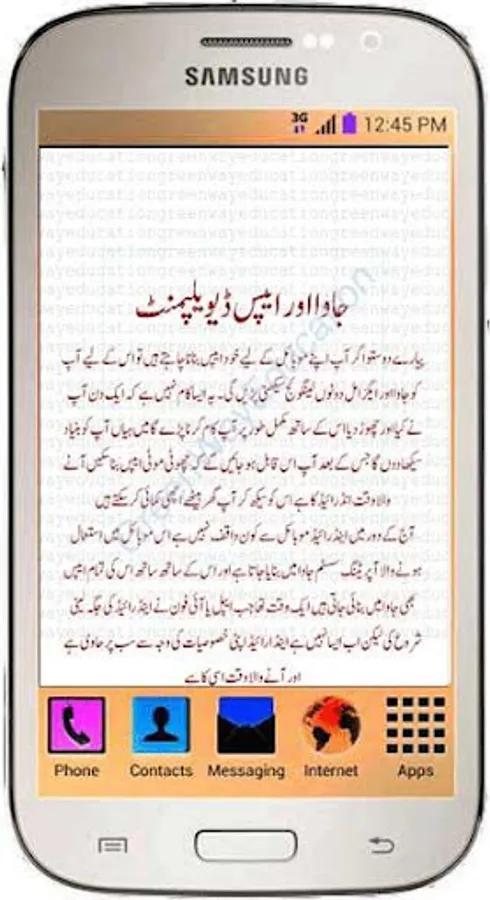 SAMSUNG
3G 12:45 PM
جاوا اور ایپس ڈیویلپمنٹ
پیارے دوستو اگر آپ اپنے موبائل کے لیے خود ایپس بنانا چاہتے ہیں تو اس کے لیے آپ
کو جاوا اور ایگزامل دونوں لینگوئج سیکھنی پڑیں گی۔ یہ ایسا کام نہیں ہے کہ ایک دن آپ
نے کیا اور چھوڑ دیا اس کے ساتھ مکمل طور پر آپ کام کرنا پڑے گا میں یہاں آپ کو بنیاد
سیکھا دوں گا جس کے بعد آپ اس قابل ہو جائیں گے کہ چھوٹی موٹی ایپس بنا سکیں آنے
والا وقت انڈرائیڈ کا ہے اس کو سیکھ کر آپ گھر بیٹھے اچھی کمائی کر سکتے ہیں
آج کے دور میں اینڈرائیڈ موبائل سے کون واقف نہیں ہے اس موبائل میں استعمال
ہونے والا آپریٹنگ سسٹم جاوا میں بنایا جاتا ہے اور اس کے ساتھ ساتھ اس کی تمام ایپس
بھی جاوا میں بنائی جاتی ہیں ایک وقت تھا جب ایپل یا آئی فون نے اینڈرائیڈ کی جگہ لینی
شروع کی لیکن اب ایسا نہیں ہے اینڈرائیڈ اپنی خصوصیات کی وجہ سے سب پر حاوی ہے
اور آنے والا وقت اسی کا ہے
Phone Contacts Messaging Internet Apps